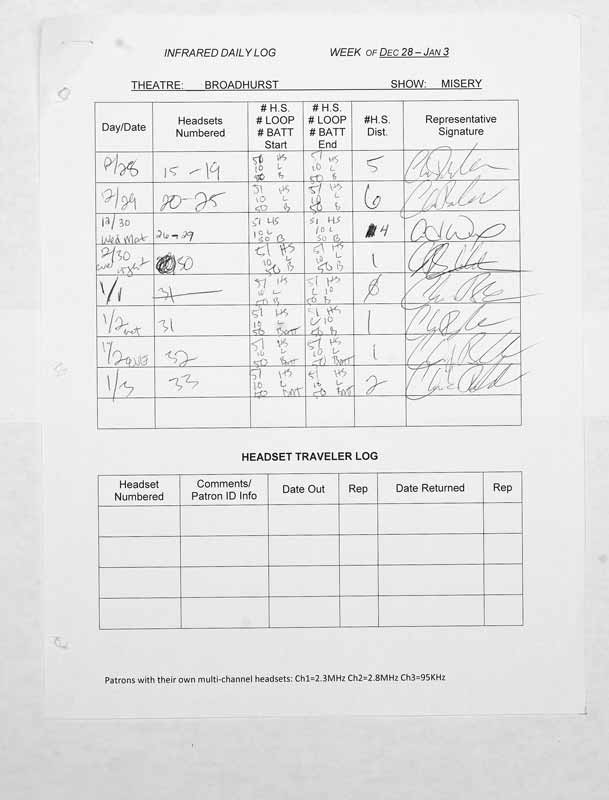 INFRARED DAILY LOG WEEK OF DEC 28 – JAN 3
THEATRE: BROADHURST SHOW: MISERY
Day/Date Headsets Numbered # H.S. # LOOP # BATT Start # H.S. # LOOP # BATT End #H.S. Dist. Representative Signature
/28 15 - 19 51 HS 10 L 50 B 51 HS 10 L 50 B 5
/29 20-25 51 HS 10 L 50 B 51 HS 10 L 50 B 6
12/30 Wed Mat 26-29 51 HS 10 L 50 B 51 HS 10 L 50 B 4
/30 30 51 HS 10 L 50 B 51 HS 10 L 50 B 1
1/1 31 51 HS 10 L 50 B 51 HS L 10 50 B 0
1/2 31 51 HS 10 L 50 Batt 51 HS L 10 50 B 1
1/2 eve 32 51 HS 10 L 50 Batt 51 HS 10 L 50 Batt 1
1/3 33 51 HS 10 L 50 Batt 51 HS 10 L 50 Batt 2
HEADSET TRAVELER LOG
Headset Numbered Comments/ Patron ID Info Date Out Rep Date Returned Rep
Patrons with their own multi-channel headsets: Ch1=2.3MHz Ch2=2.8MHz Ch3=95KHz